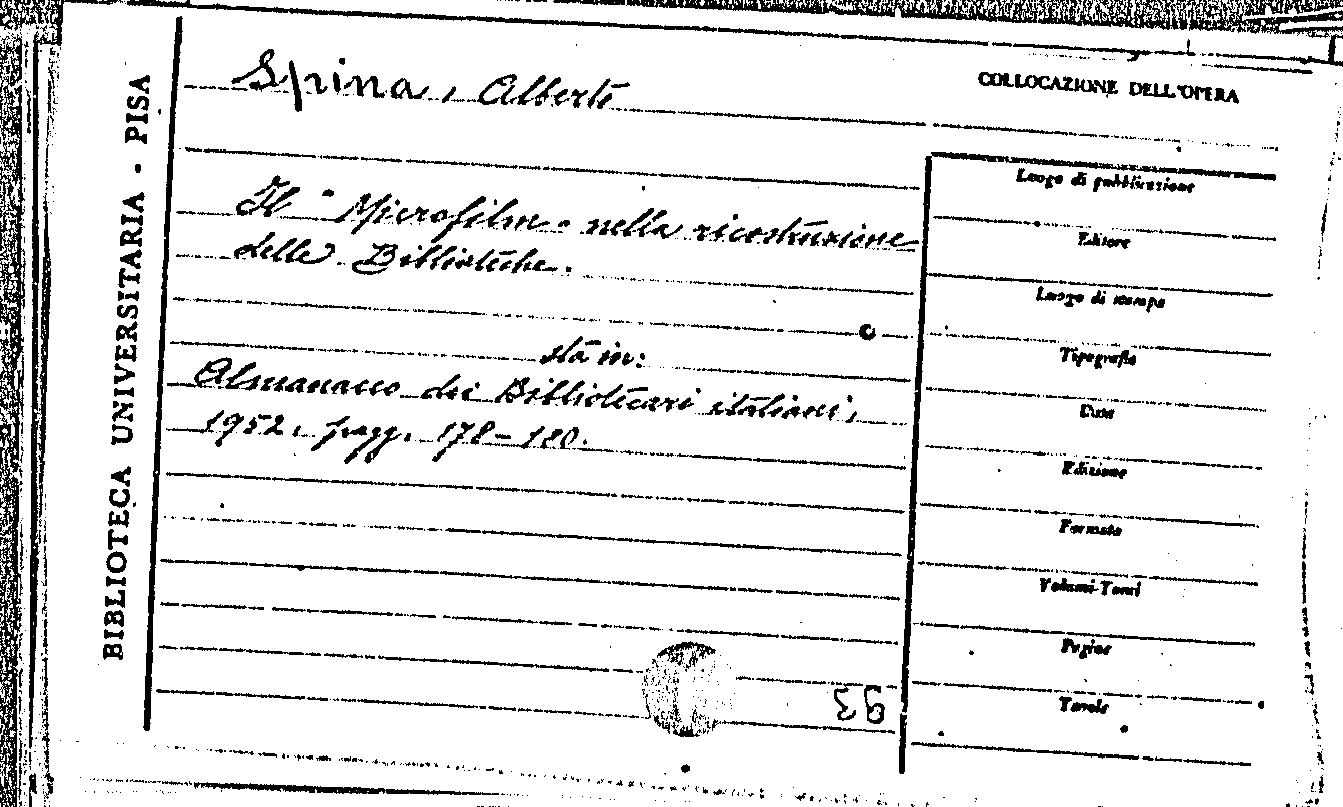 BIBLIOTECA UNIVERSITARIA - PISA
Spina, Alberto
COLLOCAZIONE DELL'OPERA
Il "Microfilm" nella ricostruzione
delle Biblioteche.
sta in:
Almanacco dei Bibliotecari italiani,
1952, pagg. 178-180.
Luogo di pubblicazione
Editore
Luogo di stampa
Tipografia
Data
Edizione
Formato
Volumi-Tomi
Pagine
Tavole
93